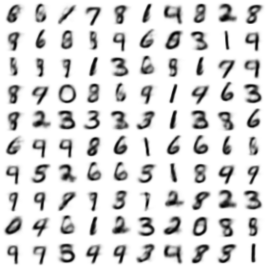 6 6 1 7 8 1 9 8 2 8
8 6 8 8 9 6 0 3 1 9
8 9 9 1 3 6 8 1 7 9
8 9 0 8 6 9 1 4 6 3
8 2 3 3 3 3 1 3 8 6
6 9 9 8 6 1 6 6 6 8
9 5 2 6 6 5 1 8 9 9
9 9 8 9 3 1 2 8 2 3
0 4 6 1 2 3 2 0 8 8
9 9 3 9 9 3 9 8 3 1